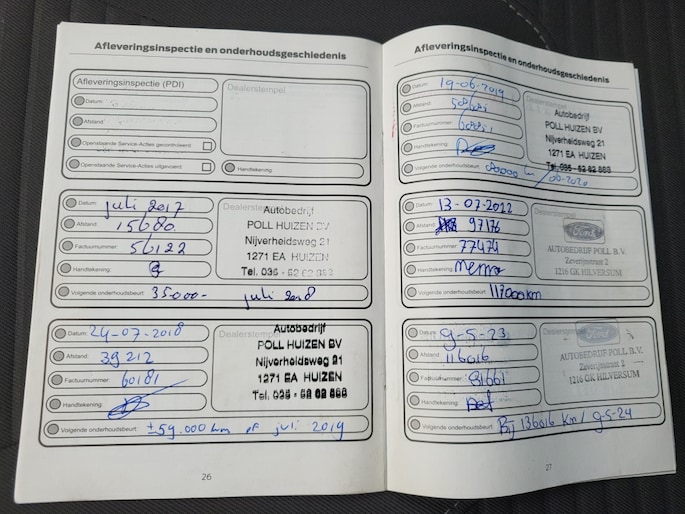 Afleveringsinspectie en onderhoudsgeschiedenis
Afleveringsinspectie (PDI)
Dealerstempel
Datum:
Afstand:
Openstaande Service-Acties gecontroleerd:
Openstaande Service-Acties uitgevoerd:
Handtekening:
Datum: juli 2017
Afstand: 15680
Factuurnummer: 56122
Handtekening:
Volgende onderhoudsbeurt: 35000- juli 2018
Dealerstempel
Autobedrijf
POLL HUIZEN BV
Nijverheidsweg 21
1271 EA HUIZEN
Tel. 035 - 52 62 888
Datum: 24-07-2018
Afstand: 39212
Factuurnummer: 60181
Handtekening:
Volgende onderhoudsbeurt: ±59.000 km of juli 2019
Dealerstempel
Autobedrijf
POLL HUIZEN BV
Nijverheidsweg 21
1271 EA HUIZEN
Tel. 035 - 52 62 888
26
Afleveringsinspectie en onderhoudsgeschiedenis
Datum: 19-06-2019
Afstand:
Factuurnummer:
Handtekening:
Volgende onderhoudsbeurt: km
Dealerstempel
Autobedrijf
POLL HUIZEN BV
Nijverheidsweg 21
1271 EA HUIZEN
Tel. 035 - 52 62 888
Datum: 13-07-2022
Afstand: 97176
Factuurnummer: 77474
Handtekening:
Volgende onderhoudsbeurt: 117000km
Dealerstempel
Ford
AUTOBEDRIJF POLL B.V.
Zeverijnstraat 2
1216 GK HILVERSUM
Datum: 9-5-23
Afstand: 116016
Factuurnummer: 81661
Handtekening:
Volgende onderhoudsbeurt: Bij 136016 km / 9-5-24
Dealerstempel
Ford
AUTOBEDRIJF POLL B.V.
Zeverijnstraat 2
1216 GK HILVERSUM
27